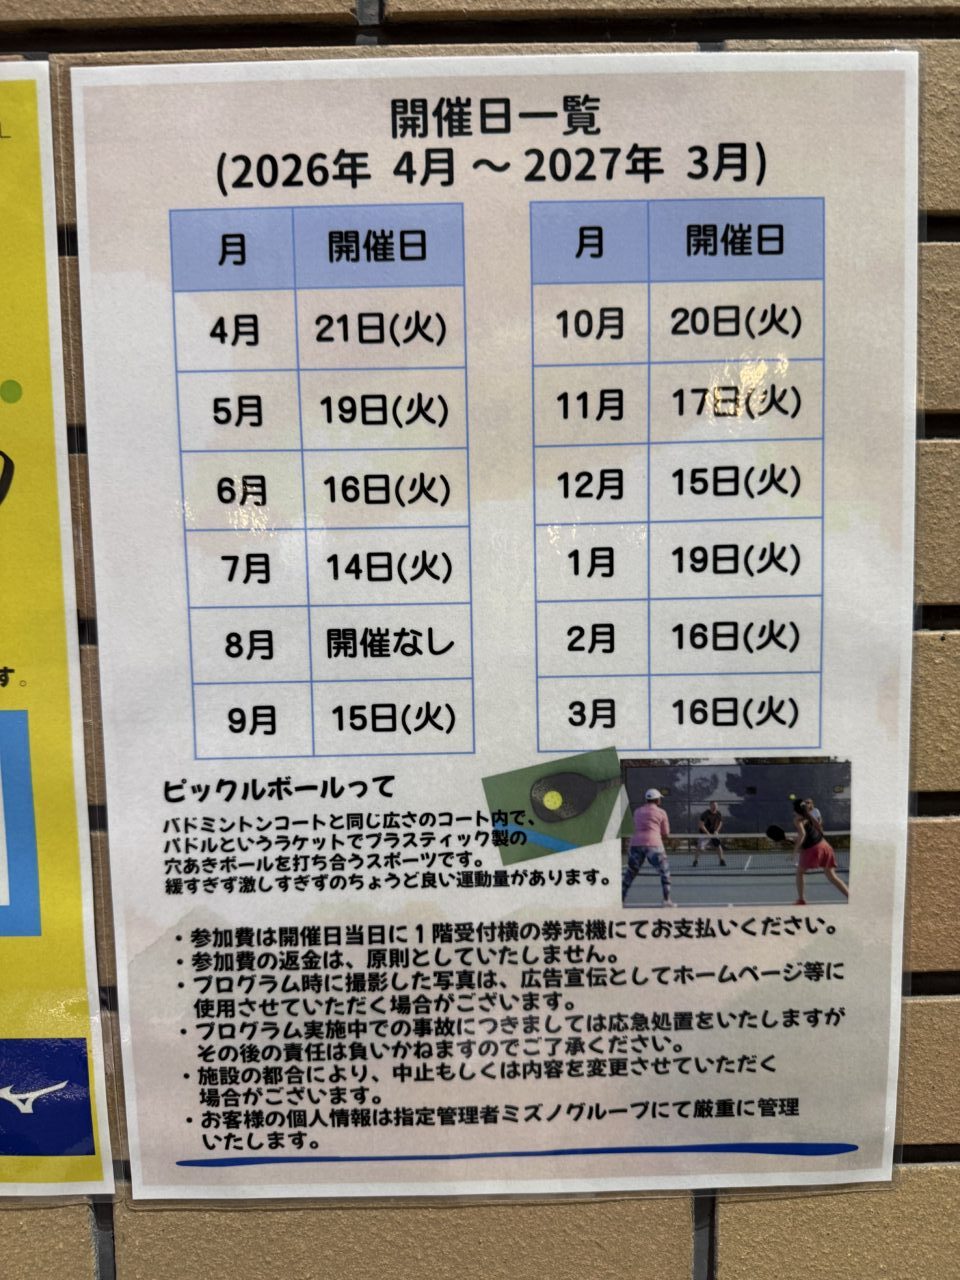 開催日一覧
(2026年 4月 ～ 2027年 3月)
月 開催日
4月 21日(火)
5月 19日(火)
6月 16日(火)
7月 14日(火)
8月 開催なし
9月 15日(火)
月 開催日
10月 20日(火)
11月 17日(火)
12月 15日(火)
1月 19日(火)
2月 16日(火)
3月 16日(火)
ピックルボールって
バドミントンコートと同じ広さのコート内で、
パドルというラケットでプラスティック製の
穴あきボールを打ち合うスポーツです。
緩すぎず激しすぎずのちょうど良い運動量があります。
・参加費は開催日当日に１階受付横の券売機にてお支払いください。
・参加費の返金は、原則としていたしません。
・プログラム時に撮影した写真は、広告宣伝としてホームページ等に
使用させていただく場合がございます。
・プログラム実施中での事故につきましては応急処置をいたしますが
その後の責任は負いかねますのでご了承ください。
・施設の都合により、中止もしくは内容を変更させていただく
場合がございます。
・お客様の個人情報は指定管理者ミズノグループにて厳重に管理
いたします。
す。